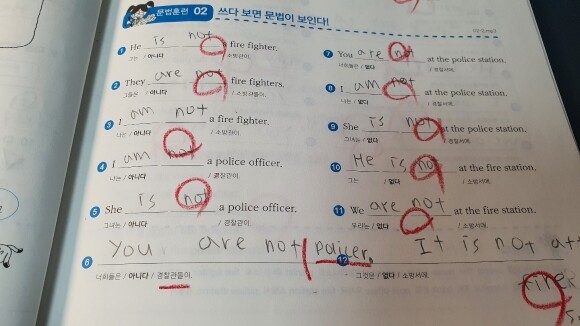 문법훈련 02 쓰다 보면 문법이 보인다!
1 He is not fire fighter.
그는 / 아니다 / 소방관이.
2 They are not fire fighters.
그들은 / 아니다 / 소방관들이.
3 I am not a fire fighter.
나는 / 아니다 / 소방관이.
4 I am not a police officer.
나는 / 아니다 / 경찰관이.
5 She is not a police officer.
그녀는 / 아니다 / 경찰관이.
6 You are not policer.
너희들은 / 아니다 / 경찰관들이.
7 You are not at the police station.
너희들은 / 없다 / 경찰서에.
8 I am not at the police station.
나는 / 없다 / 경찰서에.
9 She is not at the police station.
그녀는 / 없다 / 경찰서에.
10 He is not at the fire station.
그는 / 없다 / 소방서에.
11 We are not at the fire station.
우리는 / 없다 / 소방서에.
12 It is not at
그것은 / 없다 / 소방서에.